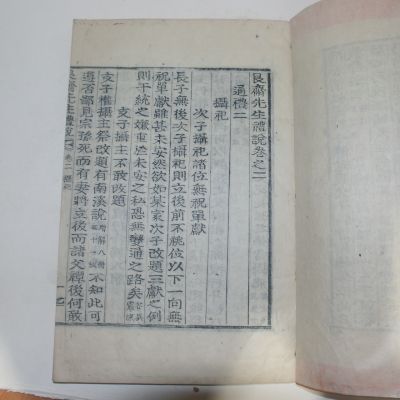 艮齋先生禮說卷之二
通禮二
攝祀
次子攝祀諸位無祝單獻
長子無後次子攝祀則立後前不祧位以下一向無
祝單獻雖甚未安然欲如某家次子改題三獻之例
則干統之嫌重於未安之私恐無變通之路矣
支子攝主不敢改題
支子權攝主祭改題有南溪說 不知此可
遵否鄙見宗孫死而有妻將立後而諸父禫後何敢
艮齋先生禮說 卷二